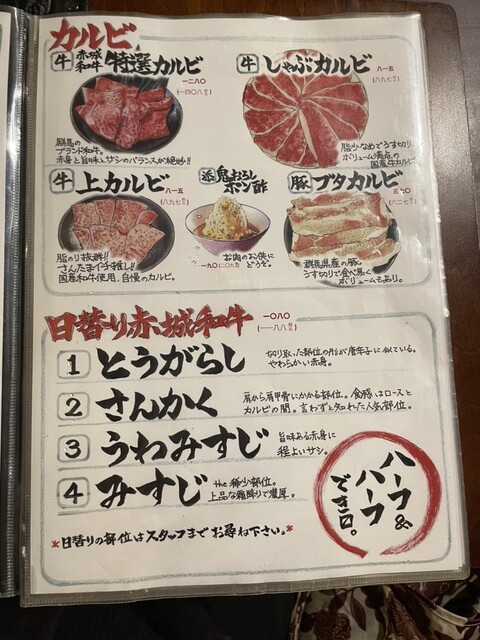 カルビ
牛 赤城和牛 特選カルビ
一二八〇
(一四〇八税込)
群馬の
ブランド和牛。
赤身と旨味、サシのバランスが絶妙!!
牛 しゃぶカルビ
八一五
(八九七税込)
脂少なめでうす切り。
ボリューム満点の
国産牛カルビ
牛 上カルビ
八一五
(八九七税込)
脂のり抜群!!
さんたまイチ推し!!
国産和牛使用、自慢のカルビ。
添 鬼おろしポン酢
お肉のお供に
どうぞ。
一九〇(二〇九税込)
豚 ブタカルビ
五七〇
(六二七税込)
群馬県産の豚。
うす切りで食べ易く
ボリュームもあり。
日替り赤城和牛
一〇八〇
(一一八八税込)
1 とうがらし
切り取った部位の形が唐辛子に似ている。
やわらかい赤身。
2 さんかく
肩から肩甲骨にかかる部位。食感はロースと
カルビの間。言わずと知れた人気部位。
3 うわみすじ
旨味ある赤身に
程よいサシ。
4 みすじ
the 稀少部位。
上品な霜降りで濃厚。
ハーフ&
ハーフ
できロ。
*日替りの部位はスタッフまでお尋ね下さい。*